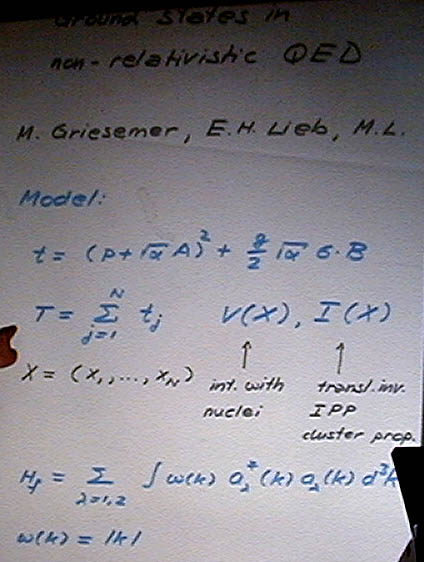 Ground States in
non-relativistic QED
M. Griesemer, E.H. Lieb, M.L.
Model:
t = (p + √α A)² + g/2 √α σ·B
T = Σ_{j=1}^{N} t_j    V(X), I(X)
X = (x₁, ..., x_N)    int. with    transl. inv.
nuclei    IPP
cluster prop.
H_f = Σ_{λ=1,2} ∫ ω(k) a_λ^*(k) a_λ(k) d³k
ω(k) = |k|